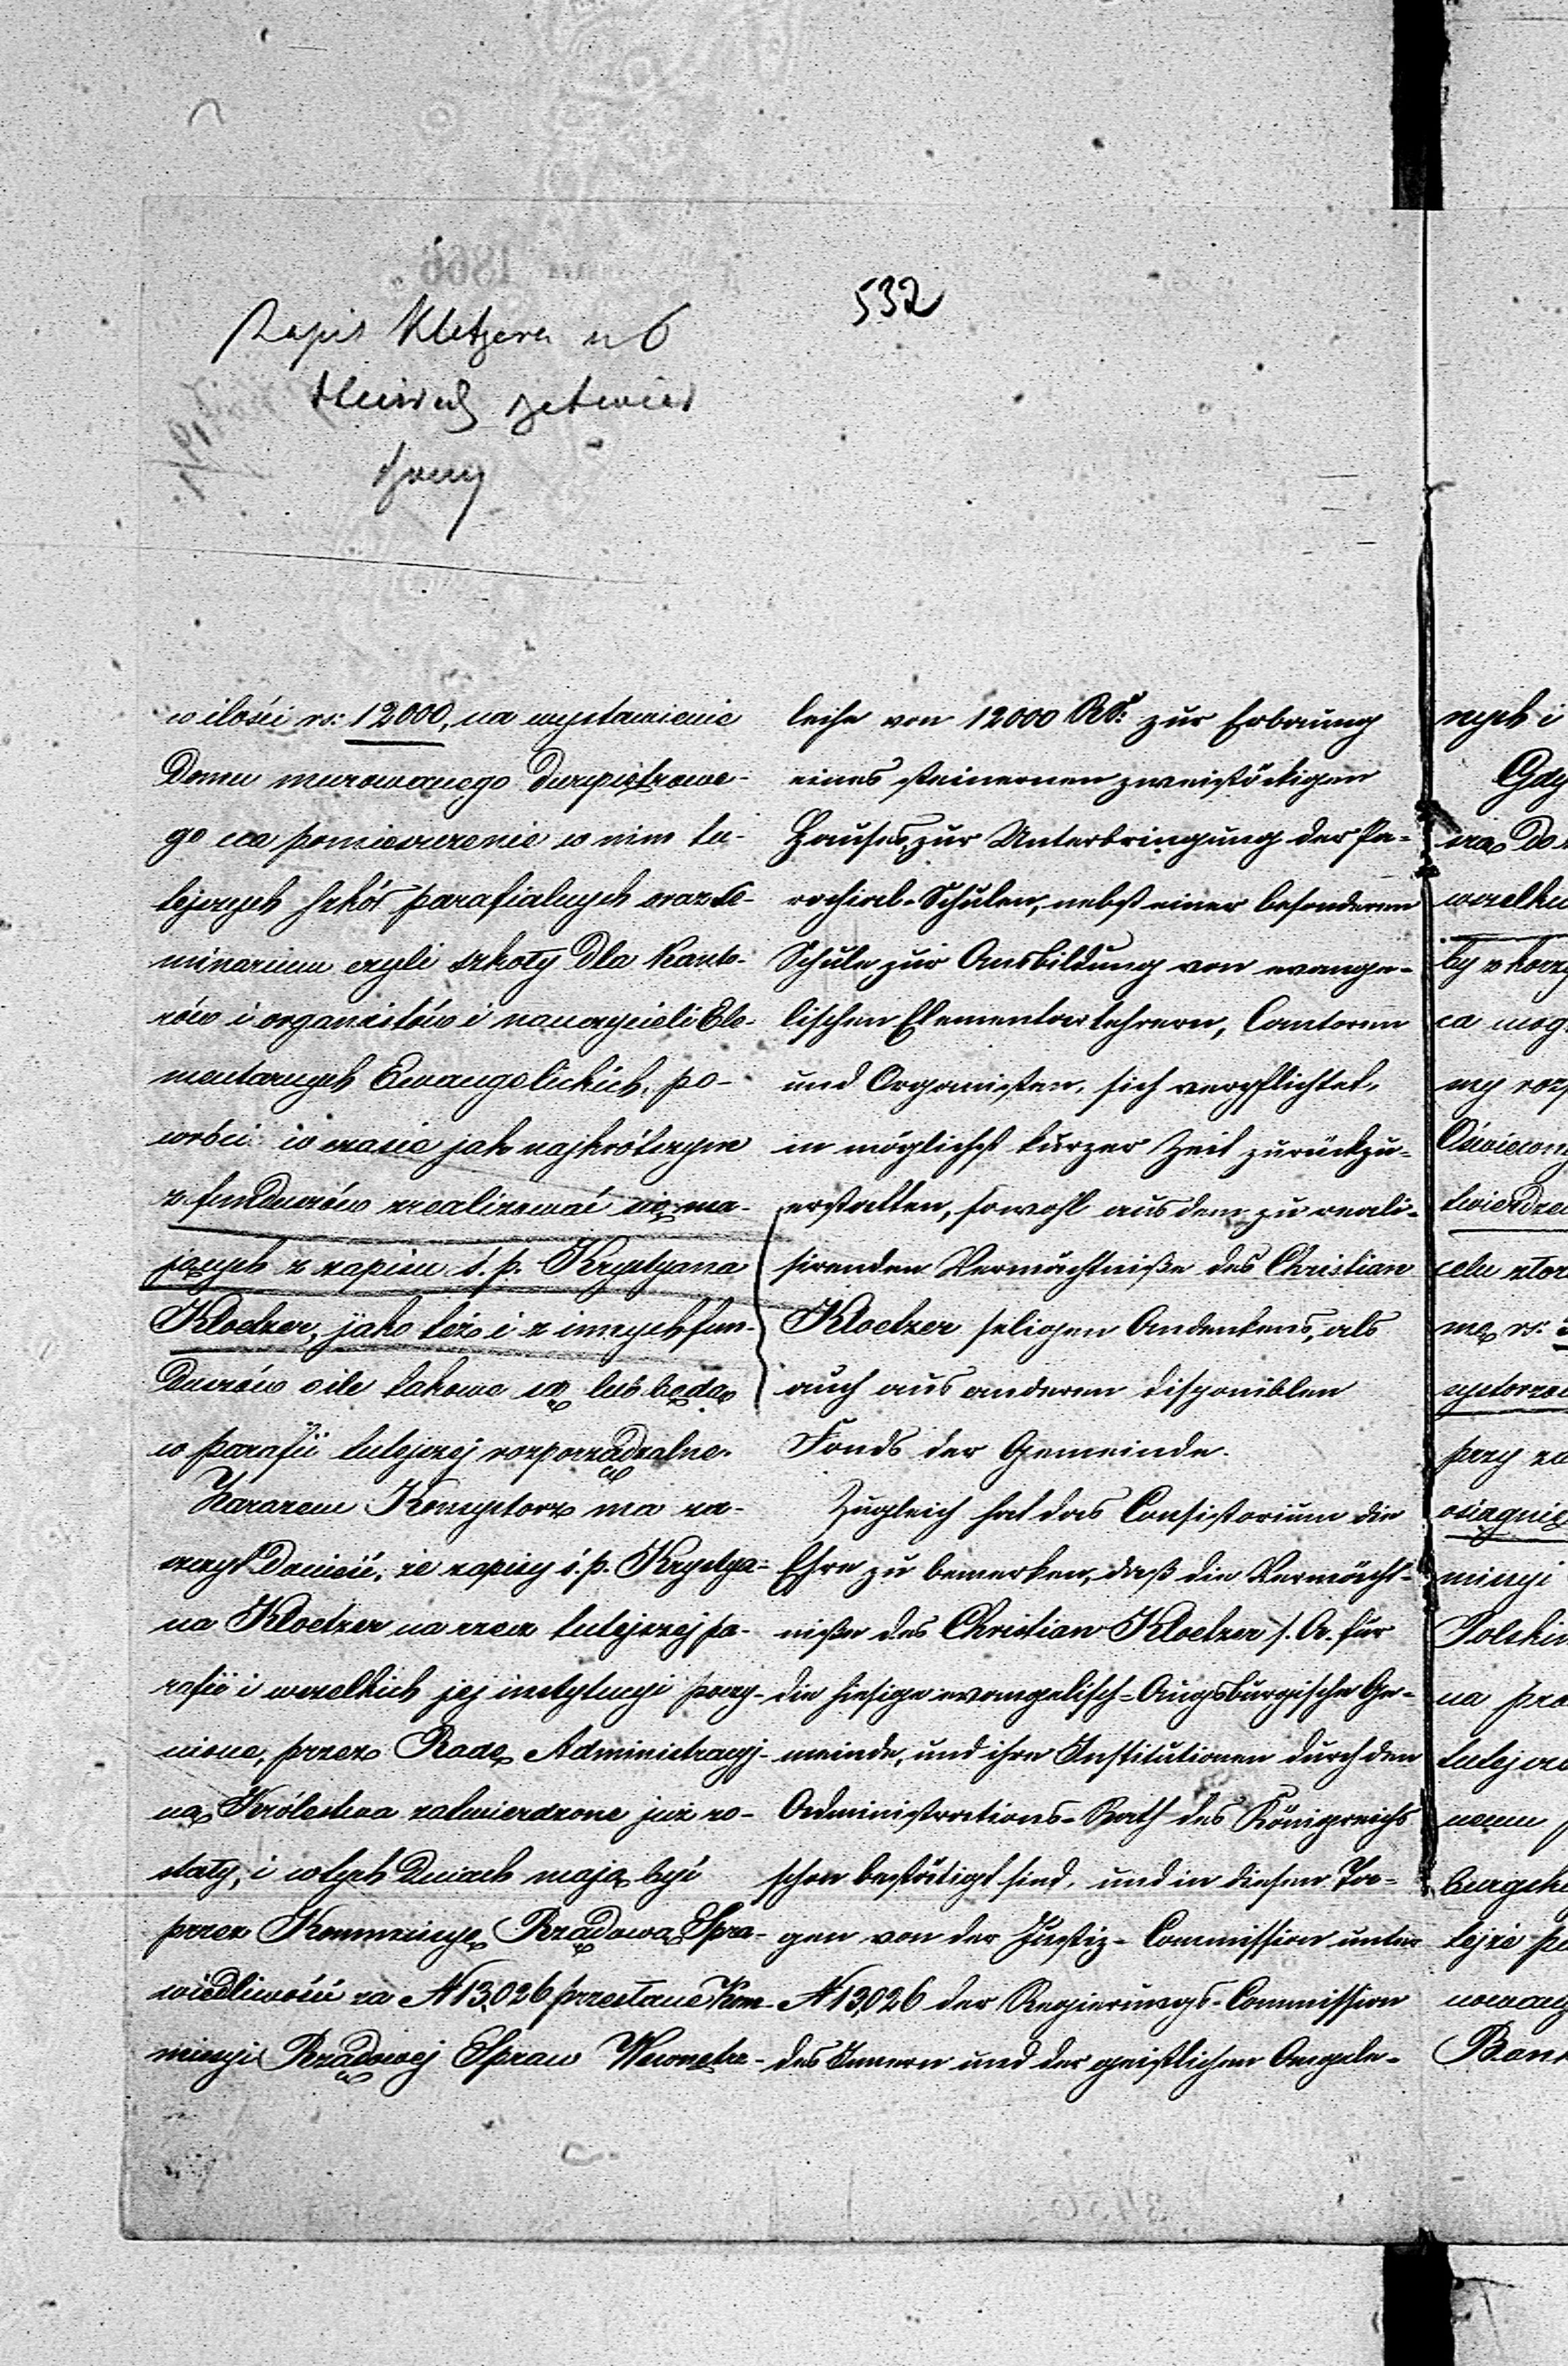 532
Zapis Kletzera
w ilości rs: 12000, na wystawienie
Domu murowanego Dwupiętrowe-
go na pomieszczenie w nim tu-
tejszych szkół parafialnych oraz Se-
minarium czyli szkoły Dla Kanto-
rów i organistów i nauczycieli Ele-
mentarnych Ewangelickich, po-
wróci w czasie jak najkrótszym
z funduszów zrealizować się ma-
jących z zapisu ś. p. Krystyana
Kloetzer, jako też i z innych fun-
Duszów o ile takowe są lub będą
w parafii tutejszej rozporządzalne.
Zarazem Konsystorz ma za-
szczyt Donieść, że zapisy ś. p. Krystya-
na Kloetzer na rzecz tutejszej pa-
rafii i wszelkich jej instytucyi poczy-
nione, przez Radę Administracyj-
ną Królestwa zatwierdzone już zo-
stały, i w tych Dniach mają być
przez Kommissyę Rządową Spra-
wiedliwości za N 13,026 przesłane Kom-
missyi Rządowej Spraw Wewnętrz-
leihe von 12000 RS: zur Erbauung
eines steinernen zweistöckigen
Hauses, zur Unterbringung der Pa-
rochial-Schulen, nebst einer besonderen
Schule zur Ausbildung von evange-
lischen Elementarlehrern, Cantoren
und Organisten, sich verpflichtet,
in möglichst kurzer Zeit zurückzu-
erstatten, sowohl aus dem zu reali-
sirenden Vermächtniße des Christian
Kloetzer seligen Andenkens, als
auch aus anderen disponiblen
Fonds der Gemeinde.
Zugleich hat das Consistorium die
Ehre zu bemerken, daß die Vermächt-
niße des Christian Kloetzer s. A. für
die hiesige evangelisch-Augsburgische Ge-
meinde, und ihre Institutionen durch den
Administrations-Rath des Königreichs
schon bestätigt sind, und in diesen Ta-
gen von der Justiz-Commission unter
N 13,026 der Regierungs-Commission
des Innern und der geistlichen Angele-
nych i
Gdy
wszelki
by z korzy
ca mog
my roz
Oświecon
twierdze
celu
mę rs:
przy
osiągnię
missyi
Polski
na prz
tutejsze
burgsk
tejże p
Bank